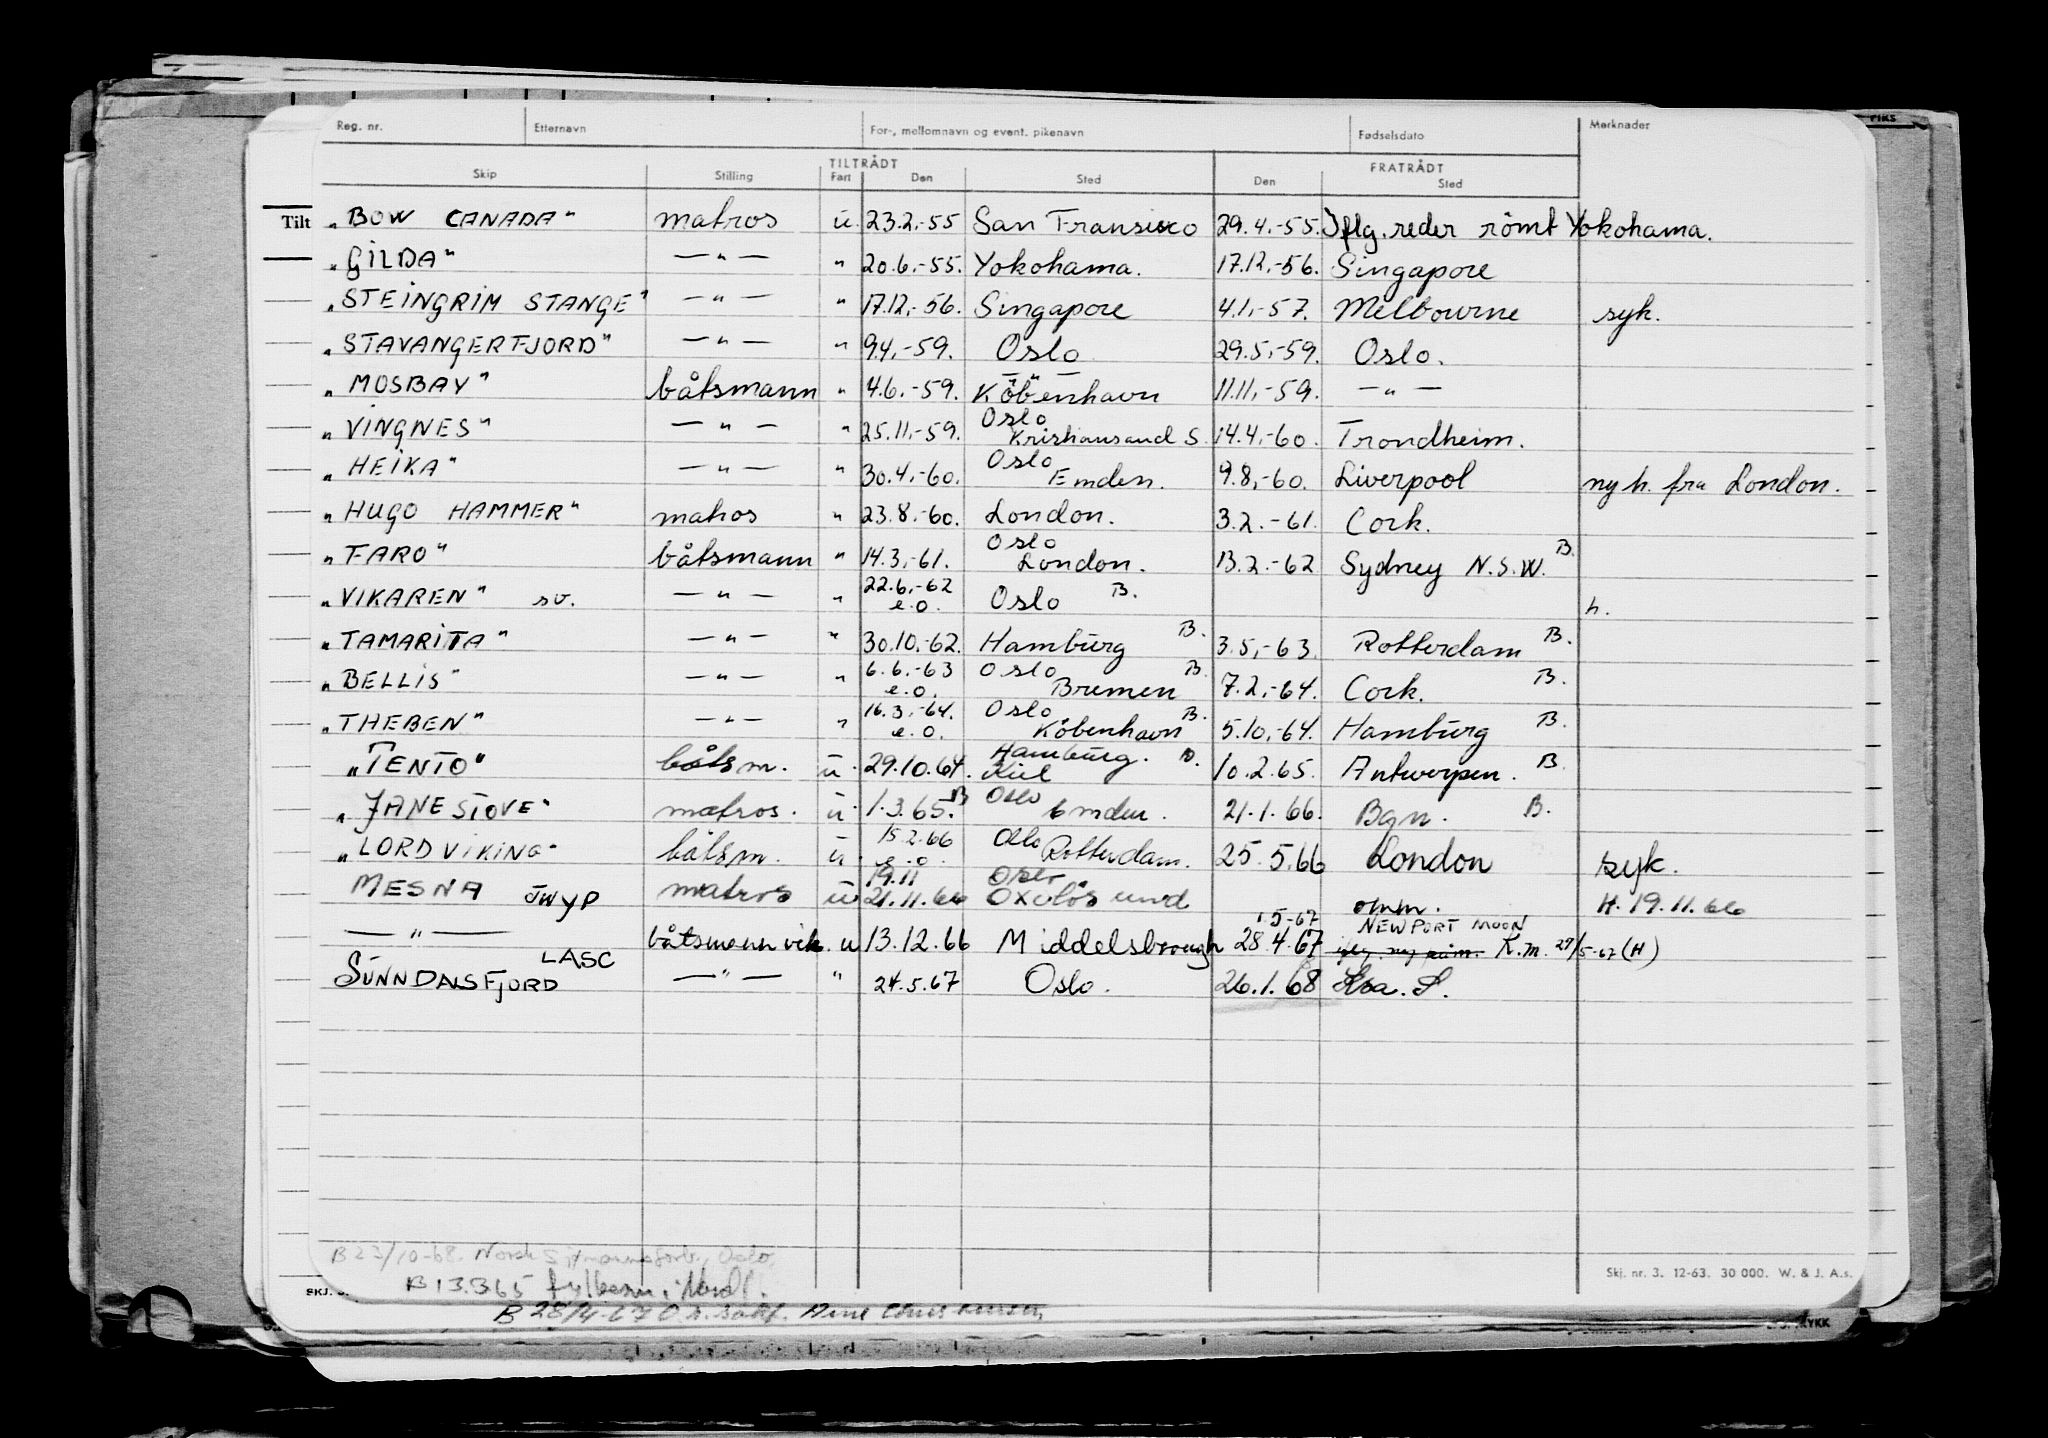 Reg. nr. Etternavn For-, mellomnavn og event. pikenavn Fødselsdato Merknader
TILTRÅDT FRATRÅDT
Skip Stilling Fart Den Sted Den Sted
Tilt „BOW CANADA" matros u. 23.2.-55 San Fransisco 29.4.-55. Iflg. reder römt Yokohama.
„GILDA" — " — " 20.6.-55. Yokohama. 17.12.-56. Singapore
„STEINGRIM STANGE" — " — " 17.12.-56. Singapore 4.1.-57. Melbourne syk.
„STAVANGERFJORD" — " — " 9.4.-59. Oslo 29.5.-59. Oslo.
„MOSBAY" båtsmann " 4.6.-59. — " — Köbenhavn 11.11.-59. — " —
„VINGNES" — " — " 25.11.-59. Oslo Kristiansand S. 14.4.-60. Trondheim.
„HEIKA" — " — " 30.4.-60. Oslo Emden. 9.8.-60. Liverpool ny h. fra London.
„HUGO HAMMER" matros " 23.8.-60. London. 3.2.-61. Cork.
„FARO" båtsmann " 14.3.-61. Oslo London. 13.2.-62 Sydney N.S.W. B.
„VIKAREN" sv. — " — " 22.6.-62 e.o. Oslo B. h.
„TAMARITA" — " — " 30.10.-62. Hamburg B. 3.5.-63. Rotterdam B.
„BELLIS" — " — " 6.6.-63 e.o. Oslo B. Bremen 7.2.-64. Cork. B.
„THEBEN" — " — " 16.3.-64. e.o. Oslo B. Köbenhavn 5.10.-64. Hamburg B.
„TENTO" båtsm. u. 29.10.64. Hamburg. Kiel 10.2.65. Antwerpen. B.
„JANE STOVE" matros. u. 1.3.65. B Oslo Emden. 21.1.66. Bgn. B.
„LORD VIKING" båtsm. u. 15.2.66 e.o. Oslo Rotterdam. 25.5.66 London syk.
MESNA JWYP matros u 19.11 21.11.66 Oslo Oxelösund omm. H. 19.11.66
— " — båtsmann vik. u 13.12.66 Middelsbrough 1.5-67 28.4.67 NEWPORT MOON K.m. 29/5-67 (H)
SUNNDALSFJORD LASC — " — " 24.5.67 Oslo. 26.1.68 Kra. S.
B 23/10-68. Norsk Sjømannsforb., Oslo.
Skj. nr. 3. 12-63. 30 000. W. & J. A.s.
B 13.3.65
SKJ.
B 28/4-67